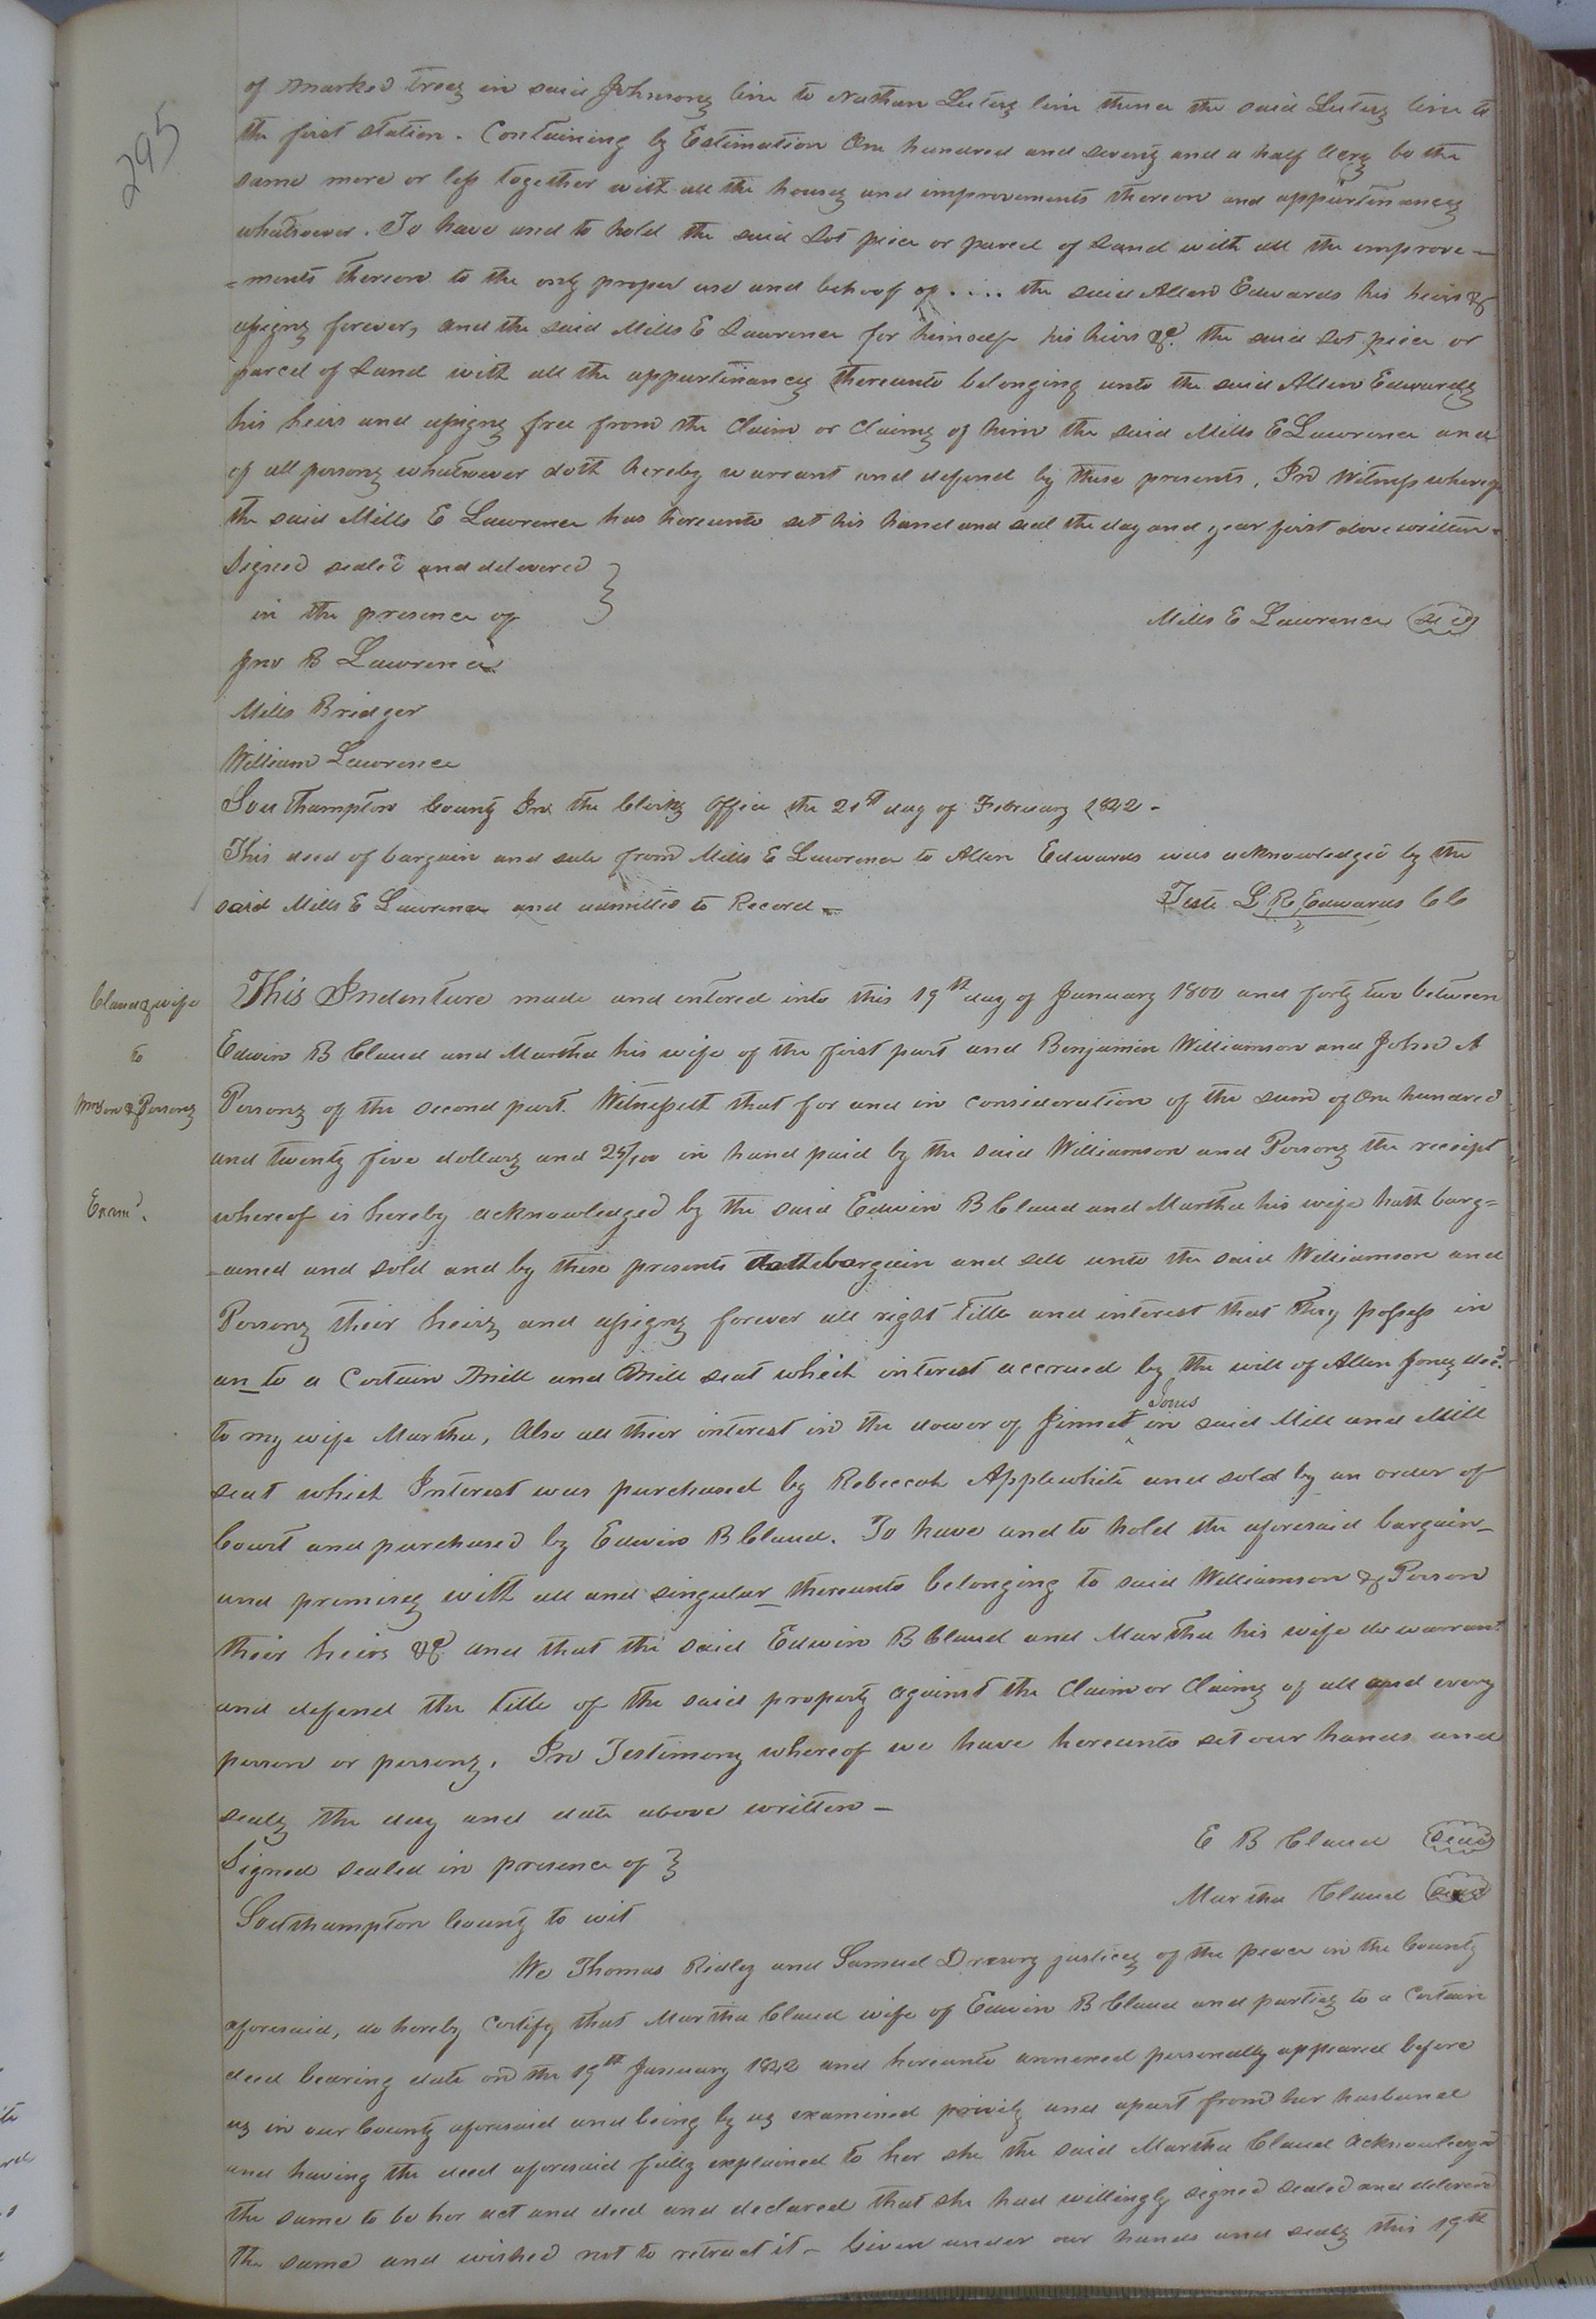 295
of marked trees in said Johnsons line to Nathan Luters line thence the said Luters line to
the first station. Containing by Estimation One hundred and seventy and a half Acres be the
same more or less together with all the houses and improvements thereon and appurtinances
whatsoever. To have and to hold the said Lot piece or parcel of Land with all the improve-
=ments thereon to the only proper use and behoof of .... the said Allen Edwards his heirs &
assigns forever, and the said Mills E Lawrence for himself his heirs &c. the said Lot piece or
parcel of Land with all the appurtinances thereunto belonging unto the said Allen Edwards
his heirs and assigns free from the Claim or Claims of him the said Mills E Lawrence and
of all persons whatsoever doth hereby warrant and defend by these presents, In Witness whereof
the said Mills E Lawrence has hereunto set his hand and seal the day and year first above written-
Signed sealed and delivered }
in the presence of
Mills E Lawrence (seal)
Jno B Lawrence
Mills Bridger
William Lawrence
Southampton County In the Clerks Office the 21st day of February 1842 -
This deed of bargain and sale from Mills E Lawrence to Allen Edwards was acknowledged by the
said Mills E Lawrence and admitted to Record -
Teste L R Edwards CC
Claud & wife
to
Wmson & Persons
Examd.
This Indenture made and entered into this 19th day of January 1800 and forty two between
Edwin B Claud and Martha his wife of the first part and Benjamin Williamson and John A
Persons of the second part. Witnesseth that for and in consideration of the sum of One hundred
and twenty five dollars and 25/100 in hand paid by the said Williamson and Persons the receipt
whereof is hereby acknowledged by the said Edwin B Claud and Martha his wife hath barg=
=ained and sold and by these presents doth bargain and sell unto the said Williamson and
Persons their heirs and assigns forever all right title and interest that they possess in
an_to a Certain Mill and Mill seat which interest accrued by the will of Allen Jones decd.
to my wife Martha, Also all their interest in the dower of Jinnet Jones in said Mill and Mill
seat which Interest was purchased by Rebeccah Applewhite and sold by an order of
Court and purchased by Edwin B Claud. To have and to hold the aforesaid bargain_
and premises with all and singular_thereunto belonging to said Williamson & Person
their heirs &c and that the said Edwin B Claud and Martha his wife do warrant
and defend the title of the said property against the Claim or Claims of all and every
person or persons. In Testimony whereof we have hereunto set our hands and
seals the day and date above written -
E B Claud (seal)
Signed sealed in presence of }
Martha Claud (seal)
Southampton County to wit
We Thomas Ridley and Samuel Drewry justices of the peace in the County
aforesaid, do hereby Certify that Martha Claud wife of Edwin B Claud and parties to a Certain
deed bearing date on the 19th January 1842 and hereunto annexed personally appeared before
us in our County aforesaid and being by us examined privily and apart from her husband
and having the deed aforesaid fully explained to her she the said Martha Claud acknowledged
the same to be her act and deed and declared that she had willingly signed sealed and delivered
the same and wished not to retract it - Given under our hands and seals this 19th